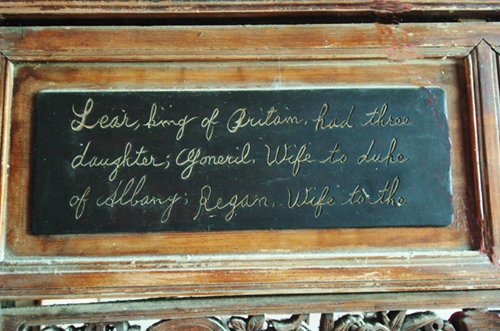 Lear, king of Britain, had three
daughter; Goneril, Wife to duke
of Albany; Regan, Wife to the